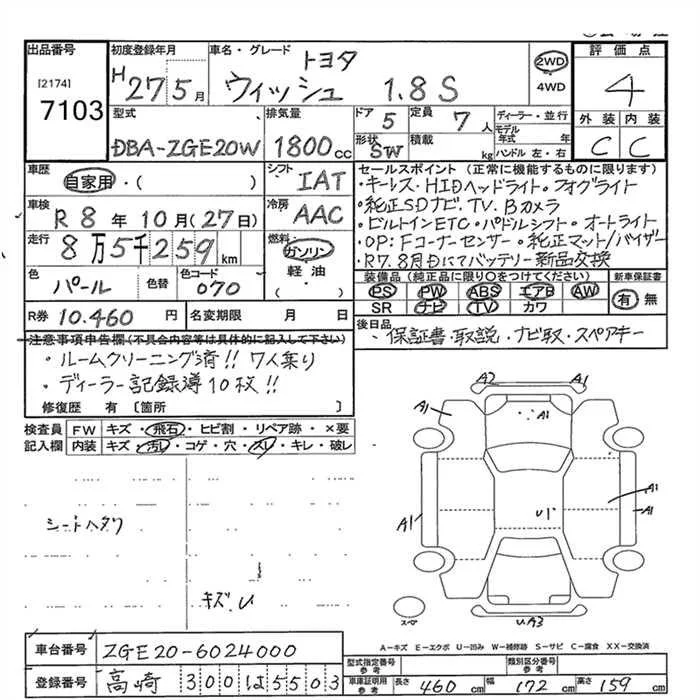 出品番号 [2174] 7103
初度登録年月 H 27年 5月
車名・グレード トヨタ ウィッシュ 1.8 S
2WD 4WD
評価点 4
外装 C 内装 C
型式 DBA-ZGE20W
排気量 1800 cc
ドア 5 定員 7 人
形状 SW 積載 kg
ディーラー・並行
モデル年式 年
ハンドル 左・右
車歴 自家用・( )
シフト IAT
車検 R 8 年 10 月 (27 日)
冷房 AAC
走行 8 万 5 千 259 km
燃料 ガソリン 軽油 ( )
色 パール 色替 色コード 070
R券 10.460 円 名変期限 月 日
セールスポイント (正常に機能するものに限ります)
・キーレス・HIDヘッドライト・フォグライト
・純正SDナビ・TV・Bカメラ
・ビルトインETC・パドルシフト・オートライト
・OP:Fコーナーセンサー・純正マット/バイザー
・R7.8月日にてバッテリー新品交換
装備品 (純正品に限り○をつけてください) 新車保証書
PS PW ABS エアB AW 有 無
SR ナビ TV カワ
後日品 ・保証書・取説・ナビ取・スペアキー
注意事項申告欄(不具合内容等は具体的に記入して下さい)
・ルームクリーニング済!! 7人乗り
・ディーラー記録簿10枚!!
修復歴 有 〔箇所 〕
検査員記入欄 FW キズ・飛石・ヒビ割・リペア跡・×要
内装 キズ・汚レ・コゲ・穴・スレ・キレ・破レ
シートヘタリ
キズ U
A2
A1 A1 A1
A1 U1 A1 A1
スペ U.A3
A-キズ E-エクボ U-凹み W-補修跡 S-サビ C-腐食 XX-交換済
車台番号 ZGE20-6024000
登録番号 高崎 300 は 5503
型式指定番号 参考 類別区分番号 参考
車庫証明用 参考 長さ 460 cm 幅 172 cm 高さ 159 cm